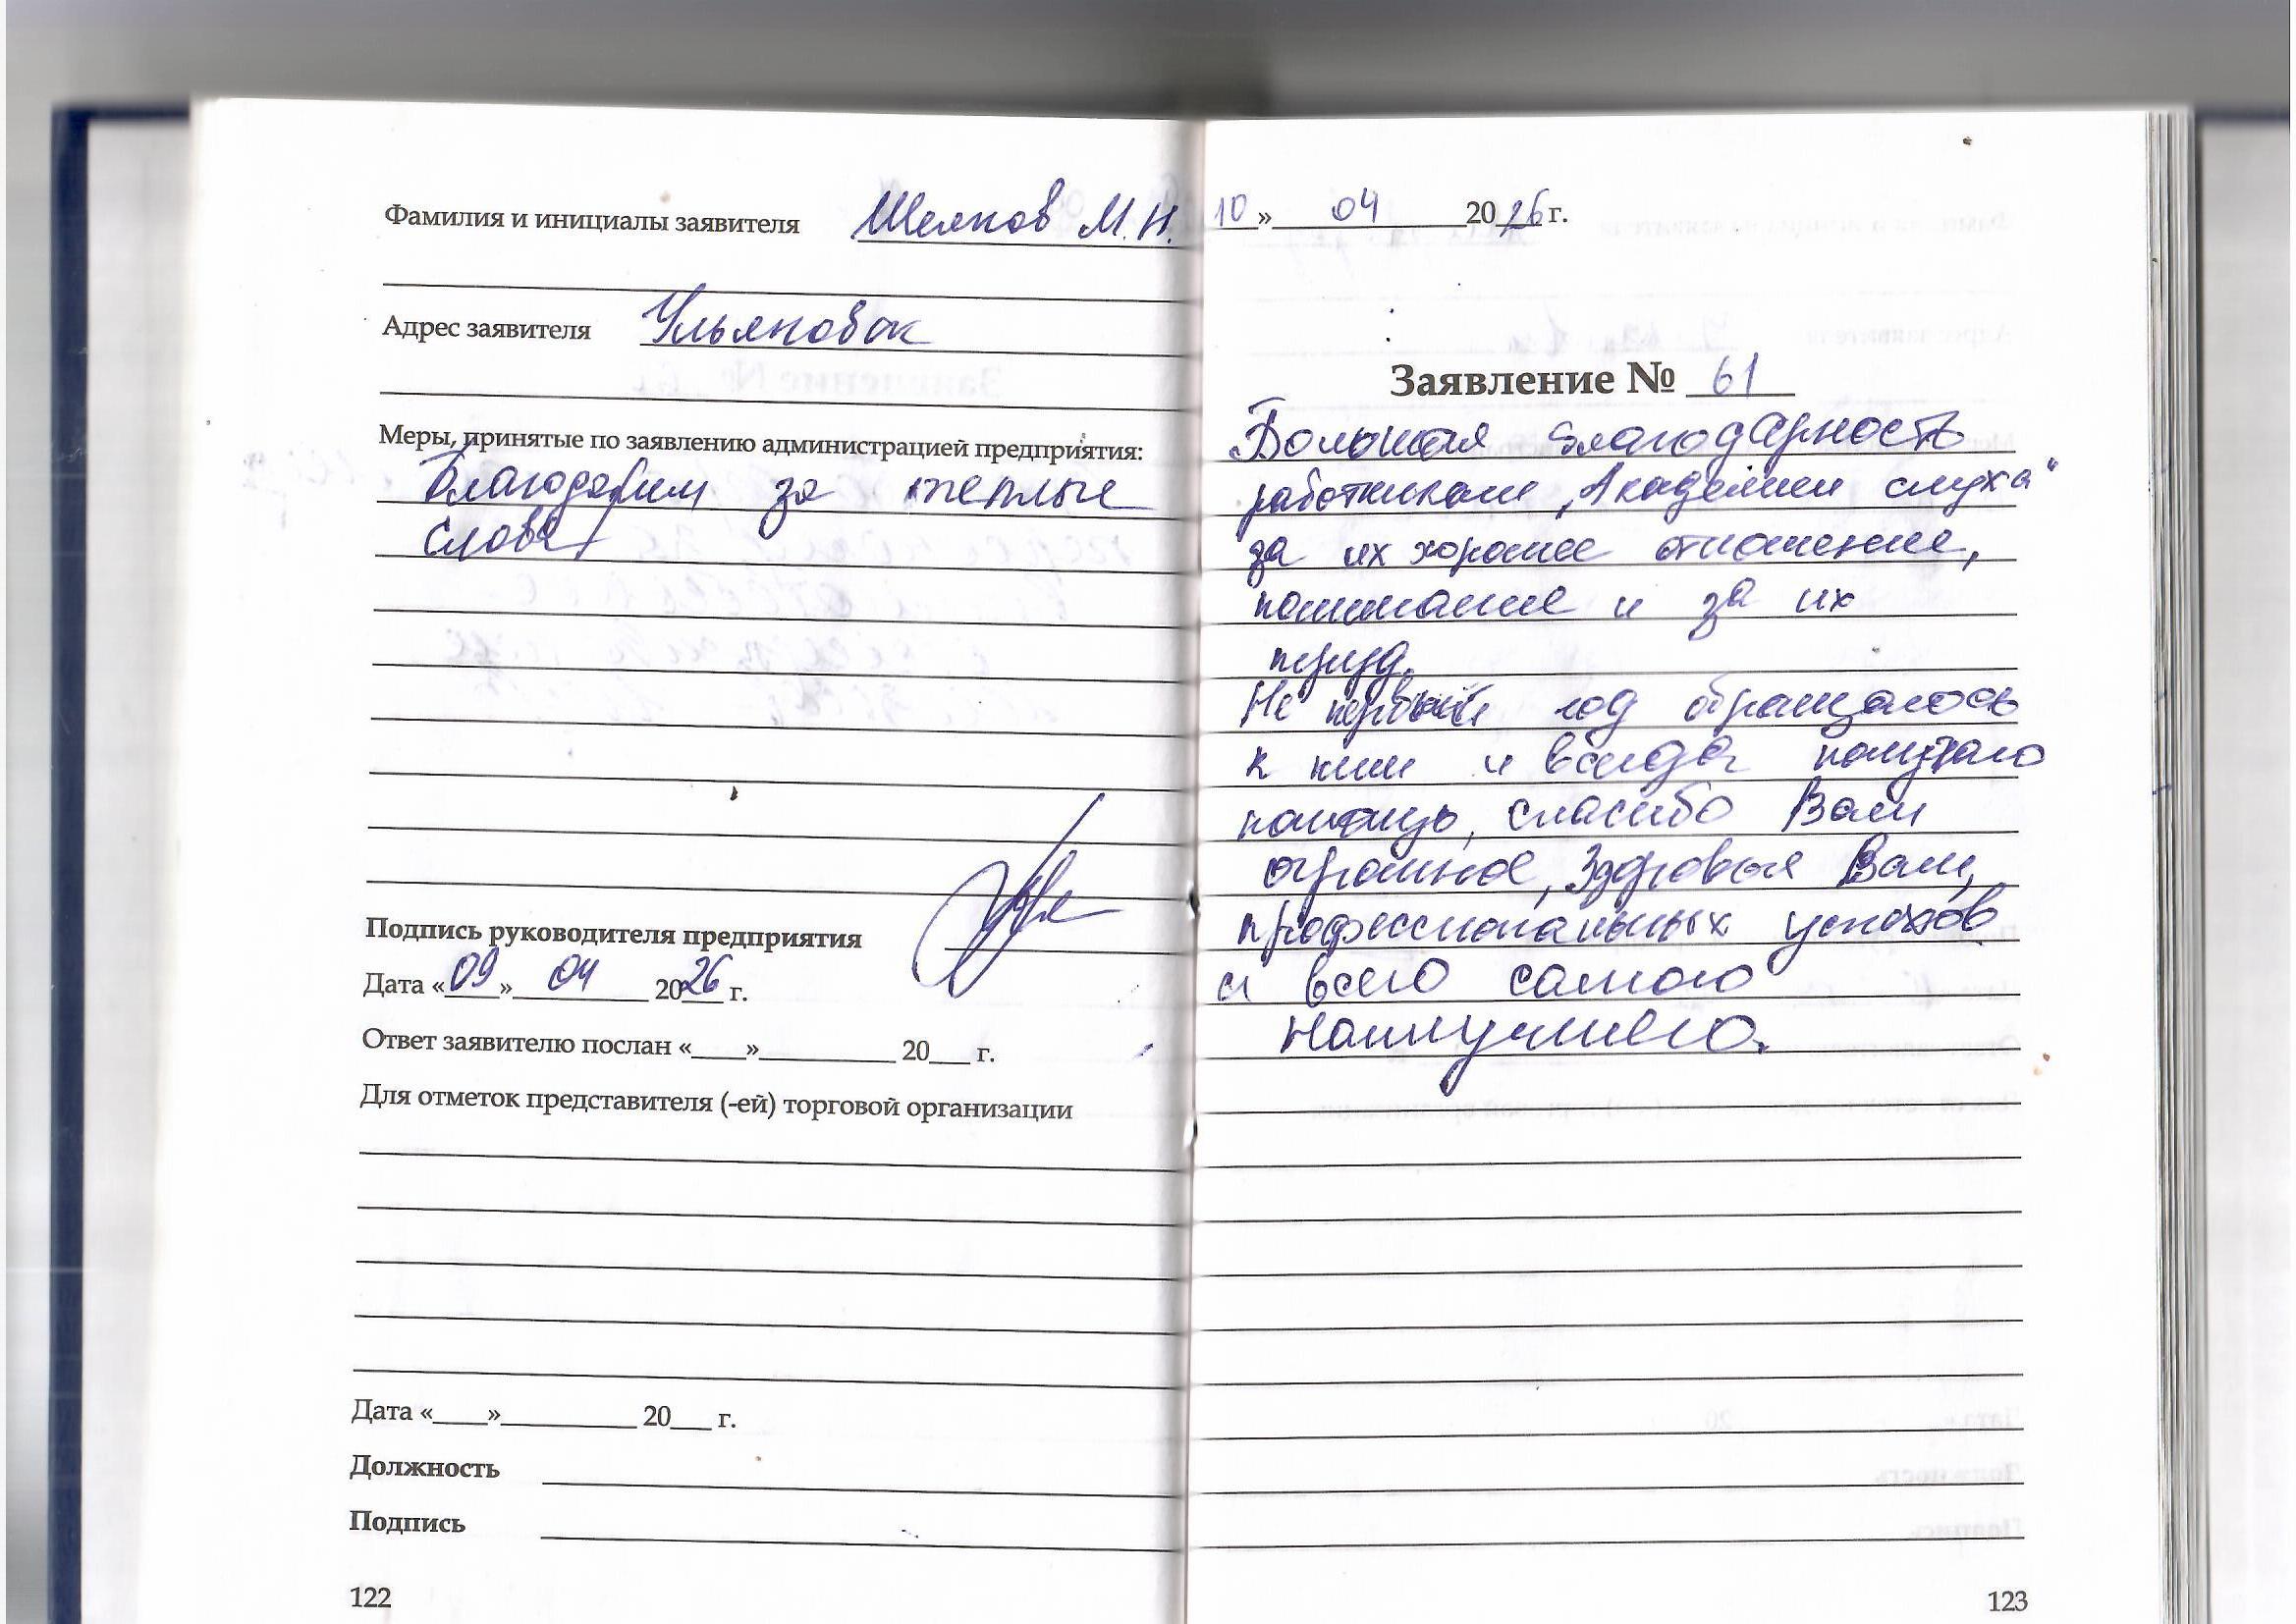 Фамилия и инициалы заявителя Шелков М.Н.
Адрес заявителя Ульяновск
Меры, принятые по заявлению администрацией предприятия:
Благодарим за теплые
слова
Подпись руководителя предприятия
Дата «09» 04 2026 г.
Ответ заявителю послан «___»__________ 20___ г.
Для отметок представителя (-ей) торговой организации
Дата «___»__________ 20___ г.
Должность
Подпись
122
10» 04 2026 г.
Заявление № 61
Большая благодарность
работникам „Академии слуха"
за их хорошее отношение,
понимание и за их
труд.
Не первый год обращаюсь
к ним и всегда получаю
помощь, спасибо Вам
огромное, Здоровья Вам,
профессиональных успехов
и всего самого
Наилучшего.
123